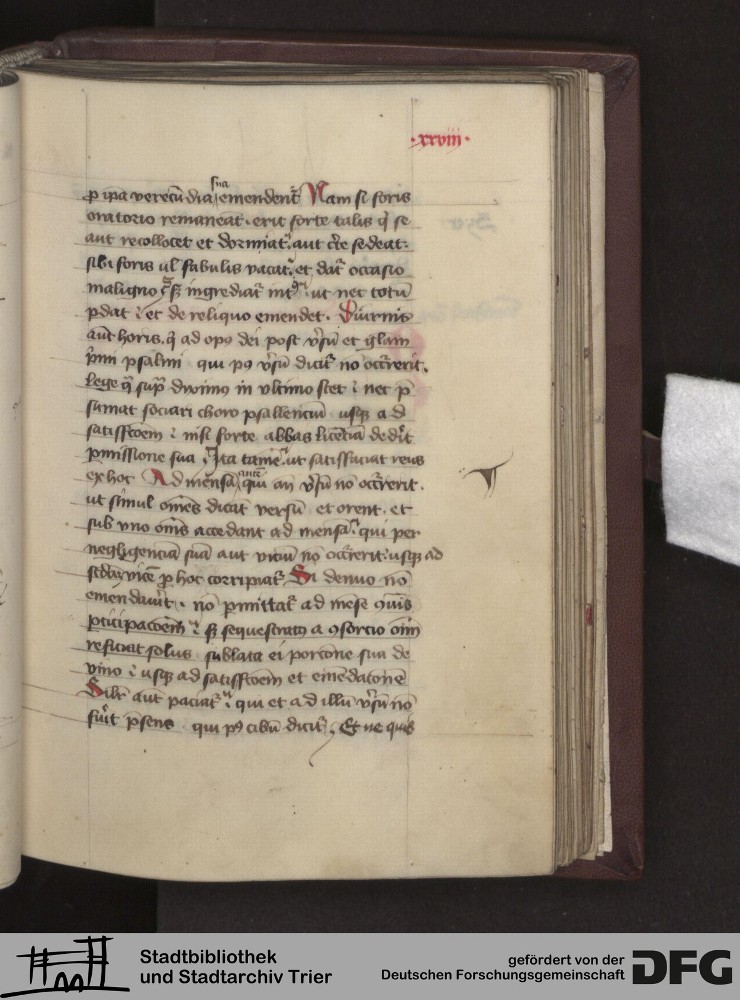 ·xxviii·
p ipa verecūdia sua emendent᷑ Nam si foris
oratorio remaneat · erit forte talis q̇ se
aut recollocet et dormiat᷑ aut c̄te sedeat᷑
sibi foris ul' fabulis vacat᷑ et dat᷑ occasio
maligno sꝫ ingrediat᷑ int⁹ ut nec totū
ꝑdat et de reliquo emendet · Diurnis
aūt horis · q̇ ad op⁹ dei post v̓sū et glam
p̓mi psalmi qui p⁹ v̓sū dicit᷑ nō occ̓rerit ·
lege q̄ sup̄ diximus in vltimo stet nec p̄
sumat sociari choro psallenciū usqꝫ ad
satisfc̄oem nisi forte abbas licēciā dedīt
ꝑmissione sua Ita tamē ut satisfaciat reus
ex hoc Ad mēsā autē qui an̄ v̓sū nō occ̓rerit ·
ut simul om̄es dicāt versū et orent · et
sub vno om̄s accedant ad mensā qui per
negligenciā suā aut viciū nō occ̓rerit usqꝫ ad
scḋam vicē ꝓ hoc corripiat᷑ Si denuo nō
emendav̓it · nō ꝑmittat᷑ ad mēse ꝯuīs
ꝑticipacōem sꝫ sequestratꝰ a ꝯsorcio om̄
reficiat solus sublata ei porcōne sua de
vino usqꝫ ad satisfc̄oem et emēdatonē
Silr̄ aūt paciat᷑ qui et ad illū v̓sū nō
fu̓it p̄sens qui p⁹ cibū dicit᷑ · Et ne quis
Stadtbibliothek
und Stadtarchiv Trier
gefördert von der
Deutschen Forschungsgemeinschaft
DFG